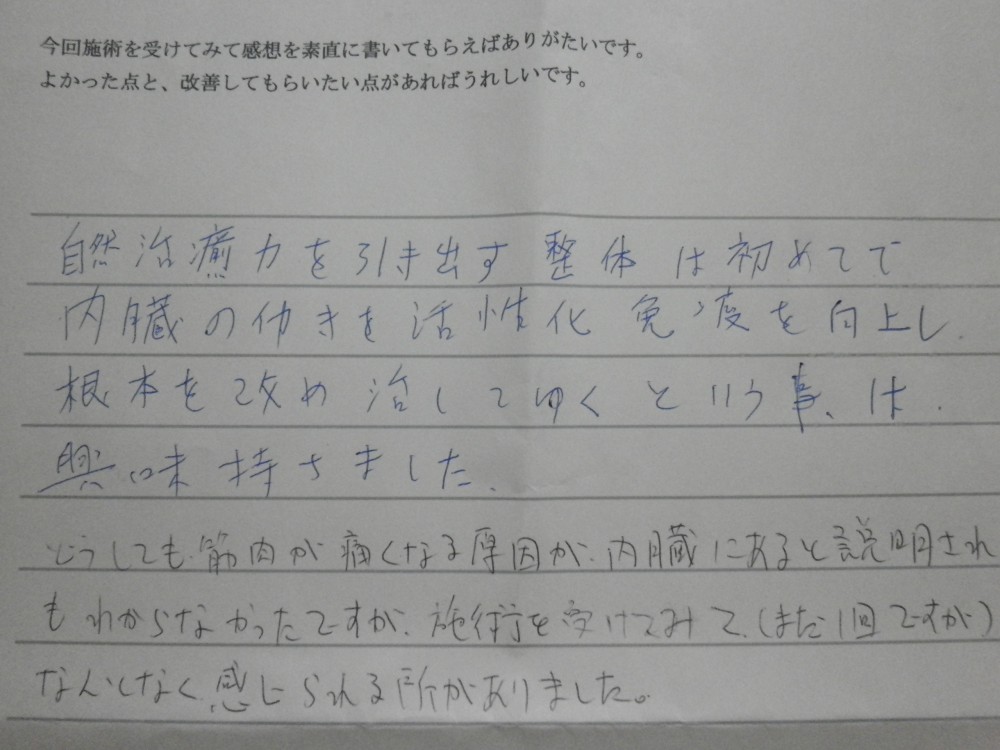 今回施術を受けてみて感想を素直に書いてもらえばありがたいです。
よかった点と、改善してもらいたい点があればうれしいです。
自然治癒力を引き出す整体は初めてで
内臓の働きを活性化免疫を向上し、
根本を改め治してゆくという事、は、
興味持ちました、
どうしても、筋肉が痛くなる原因が、内臓にあると説明され
もわからなかったですが、施術を受けてみて、(まだ1回ですが)
なんとなく感じられる所がありました。